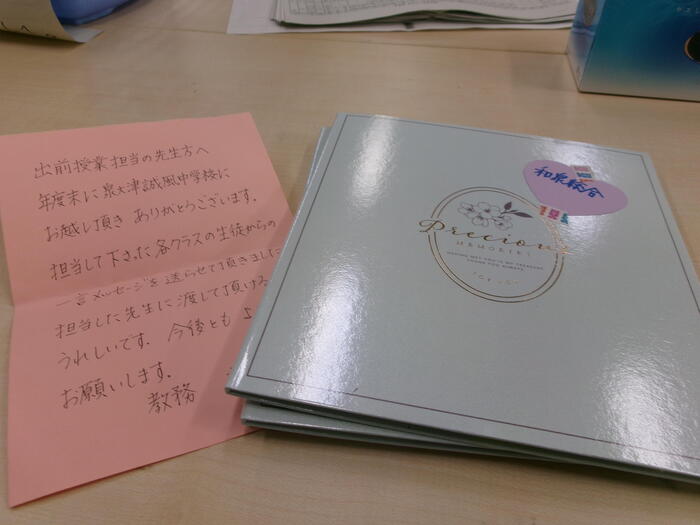 出前授業担当の先生方へ
年度末に泉大津誠風中学校に
お越し頂き ありがとうございます。
担当して下さった各クラスの生徒からの
一言メッセージを送らせて頂きました
担当した先生に渡して頂ける
うれしいです。今後とも よ
お願いします。
教務
和泉総合
Precious
MEMORIES
HAVING MET YOU IS MY TREASURE.
THANK YOU ALWAYS.